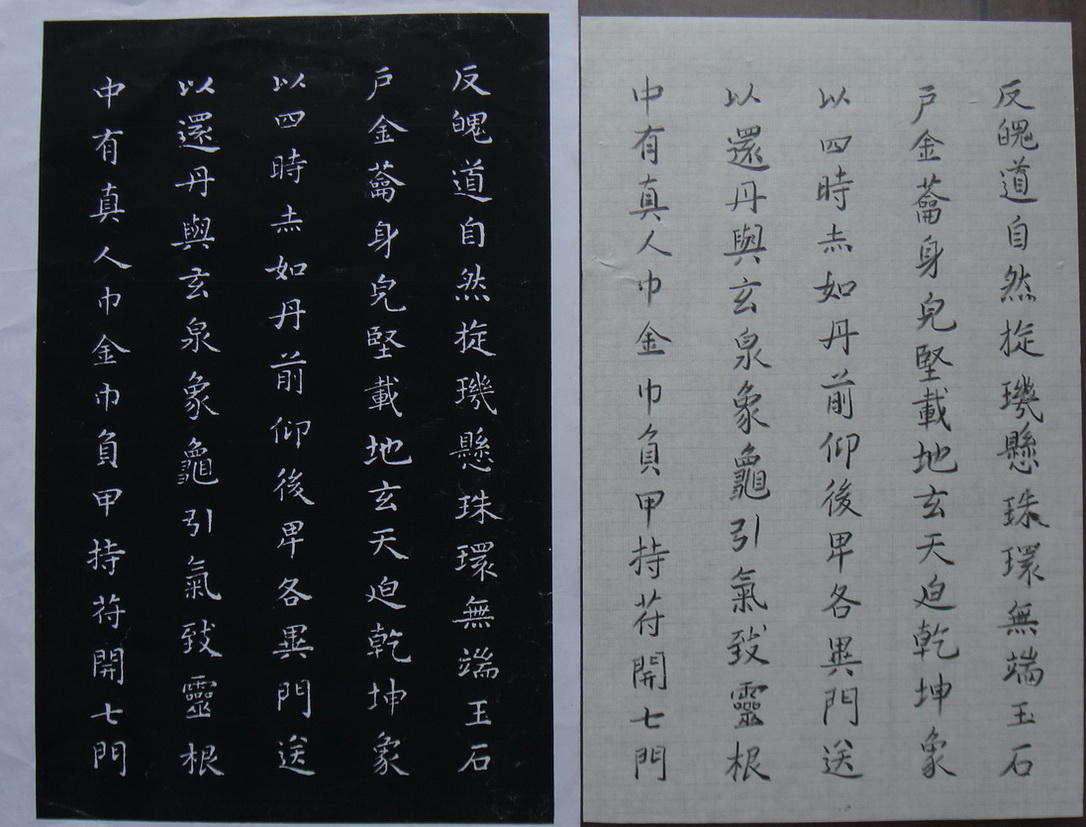 反魄道自然㨁璣懸珠環無端玉石
戶金蘥身皃堅載地玄天迫乾坤象
以四時赤如丹前仰後卑各異門送
以還丹與玄泉象龜引氣致靈根
中有真人巾金巾負甲持苻開七門
反魄道自然㨁璣懸珠環無端玉石
戶金蘥身皃堅載地玄天迫乾坤象
以四時赤如丹前仰後卑各異門送
以還丹與玄泉象龜引氣致靈根
中有真人巾金巾負甲持苻開七門